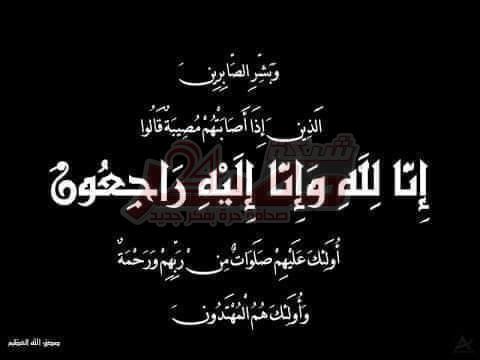 وَبَشِّرِ الصَّابِرِينَ
الَّذِينَ إِذَا أَصَابَتْهُمْ مُصِيبَةٌ قَالُوا
إِنَّا لِلَّهِ وَإِنَّا إِلَيْهِ رَاجِعُونَ
أُولَئِكَ عَلَيْهِمْ صَلَوَاتٌ مِنْ رَبِّهِمْ وَرَحْمَةٌ
وَأُولَئِكَ هُمُ الْمُهْتَدُونَ
صدق الله العظيم
صحافة حرة بفكر جديد